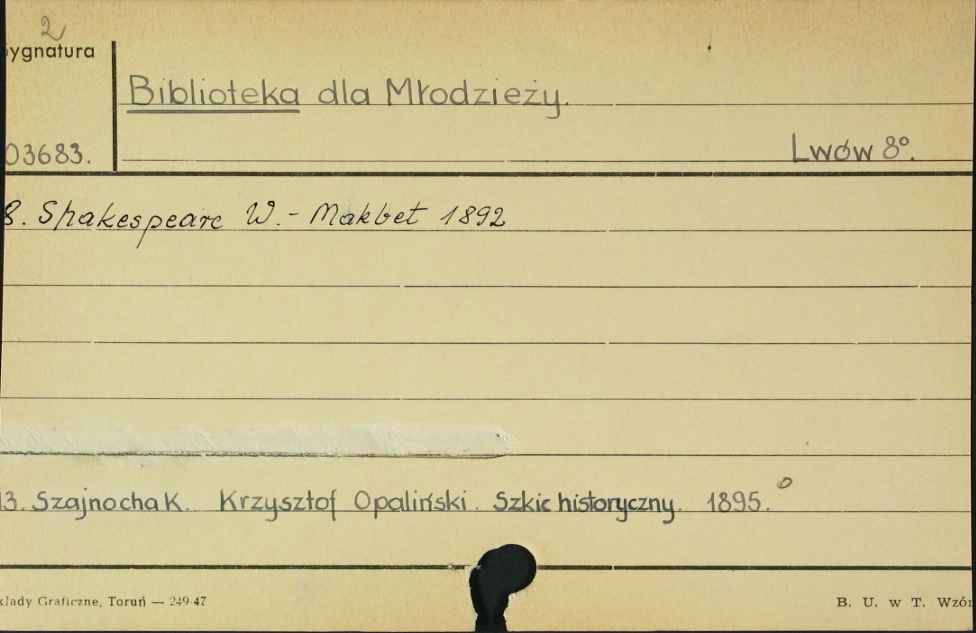 2
Sygnatura
Biblioteka dla Młodzieży.
03683.
Lwów 8°.
8. Shakespeare W. - Makbet 1892
13. Szajnocha K. Krzysztof Opaliński. Szkic historyczny. 1895.
kłady Graficzne, Toruń — 249-47
B. U. w T. Wzór